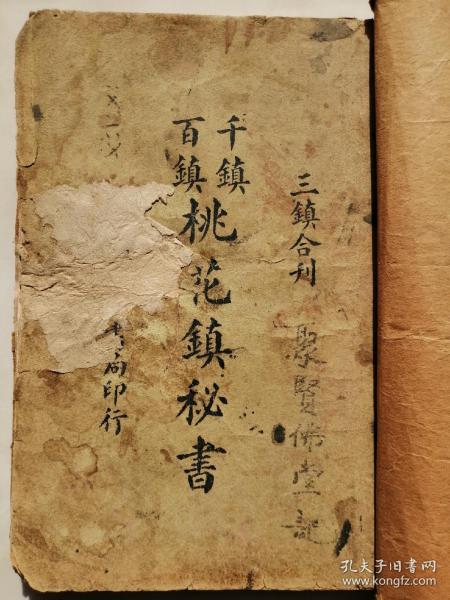 三鎮合刊
聚賢佛堂記
千鎮
百鎮
桃花鎮秘書
書局印行
孔夫子旧书网
www.kongfz.com